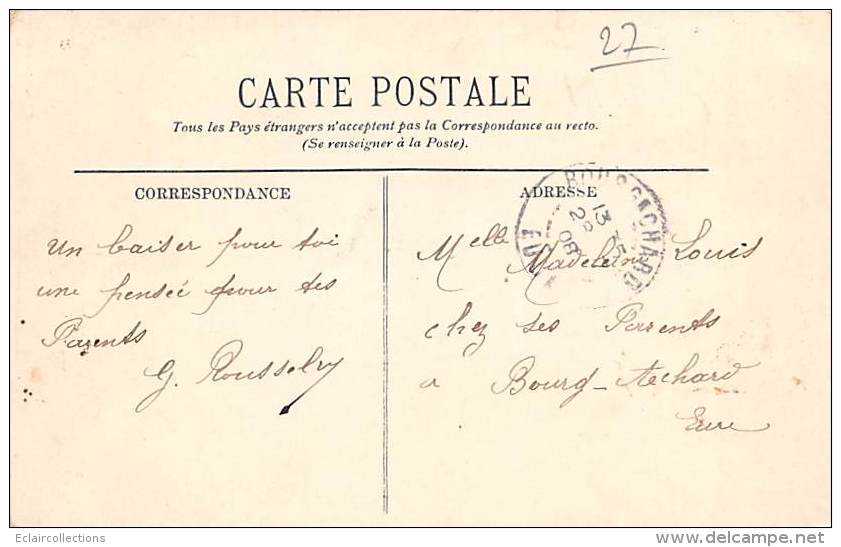 27
CARTE POSTALE
Tous les Pays étrangers n'acceptent pas la Correspondance au recto.
(Se renseigner à la Poste).
CORRESPONDANCE
Un baiser pour toi
une pensée pour tes
Parents
G.
ADRESSE
BOURGACHARD
13
08
EURE
Melle Madeleine Louis
chez ses Parents
a Bourg-Achard
Eure
Eclaircollections
www.delcampe.net